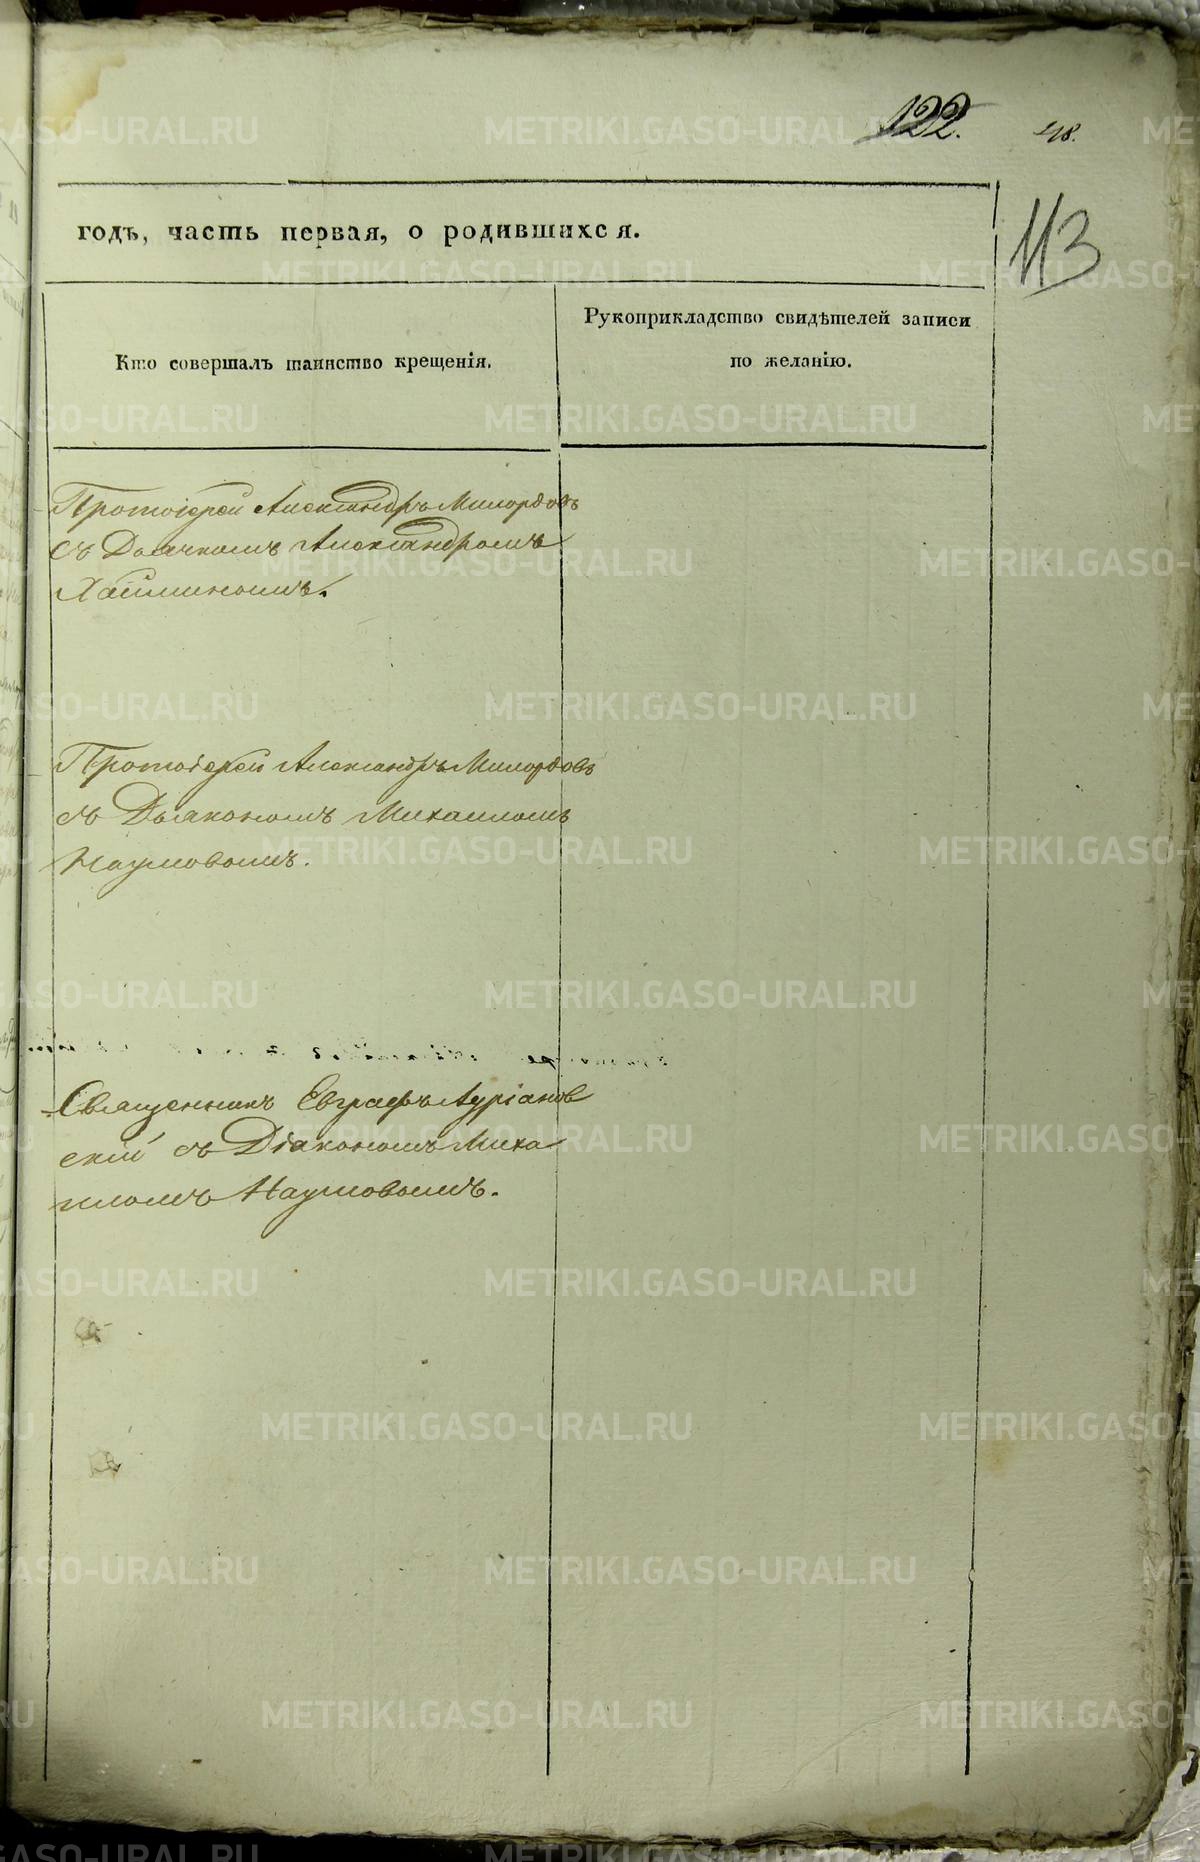 122.
418.
113
годъ, часть первая, о родившихся.
Кто совершалъ таинство крещенія.
Рукоприкладство свидѣтелей записи
по желанію.
Протоіерей Александръ Милордовъ
съ Дьячкомъ Александромъ
Хаминомъ.
Протоіерей Александръ Милордовъ
съ Дьякономъ Михаиломъ
Наумовымъ.
Священникъ Евграфъ Адріанов
скій съ Діакономъ Миха
иломъ Наумовымъ.
METRIKI.GASO-URAL.RU